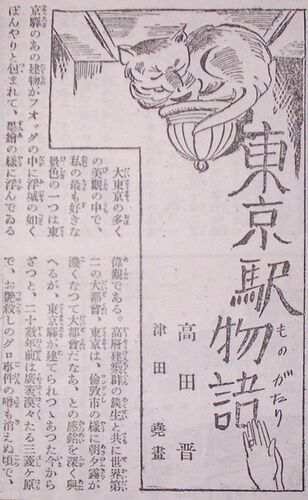 東京駅物語
ものがたり
高田晋
津田堯畫
大東京の多く
の美觀の中で、
私の最も好きな
景色の一つは東
京驛のあの建物がフオッグの中に浮城の如く
ぼんやりと包まれて、墨繪の樣に浮んでゐる
偉觀である。高層建築群の簇生と共に世界第
二の大都會、東京は、倫敦市の樣に朝夕霧が
濃くなつて大都會だなあ、との感銘を深く與
へるが、東京驛が建てられつゝあつた今から
ざつと、二十數年前は廣茫漠々たる三菱ヶ原
で、お艶殺しのグロ事件の噂も消えぬ頃で、